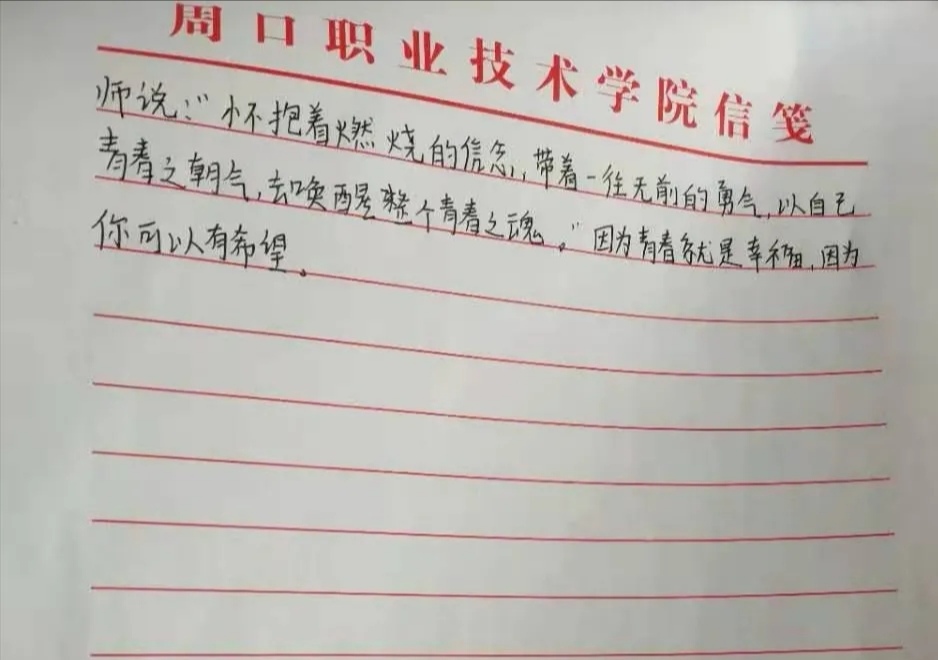 周口职业技术学院信笺
师说：“怀抱着燃烧的信念，带着一往无前的勇气，以自己
青春之朝气，去唤醒整个青春之魂。”因为青春就是幸福，因为
你可以有希望。